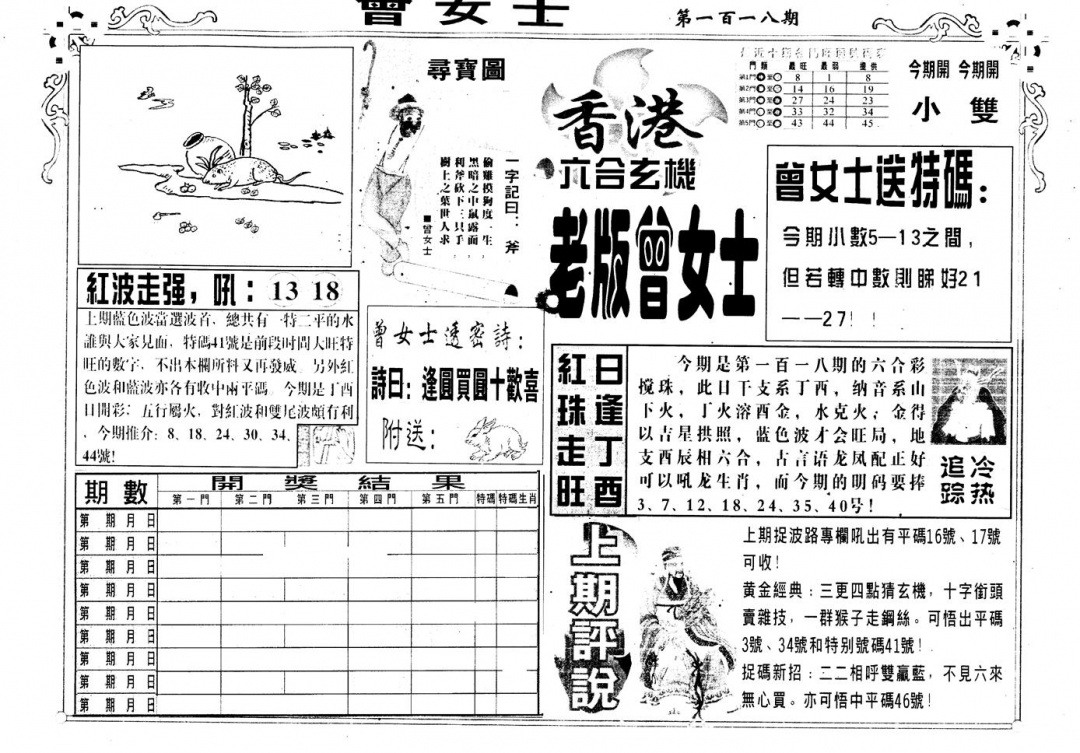 曾女士
第一百一八期
尋寶圖
一字記曰：斧
偷雞摸狗度一生，
黑暗之中鼠露面，
利斧砍下三只手，
樹上之葉世人求
■曾女士
香港
六合玄機
老版曾女士
門類 最旺 最弱 提供
第1門 8 1 8
第2門 14 16 19
第3門 27 24 23
第4門 33 32 34
第5門 43 44 45
今期開 今期開
小 雙
曾女士送特碼：
今期小數5—13之間，
但若轉中數則睇好21
——27！！
紅波走强，吼：13 18
上期藍色波當選波首，總共有一特二平的水
誰與大家見面，特碼41號是前段时間大旺特
旺的數字，不出本欄所料又再發威。另外紅
色波和藍波亦各有收中兩平碼。今期是丁酉
日開彩，五行屬火，對紅波和雙尾波頗有利
，今期推介：8、18、24、30、34、
44號!
曾女士透密詩：
詩曰：逢圓買圓十歡喜
附送：
紅珠走旺
日逢丁酉
今期是第一百一八期的六合彩
搅珠，此日干支系丁酉，纳音系山
下火，丁火溶酉金，水克火；金得
以吉星拱照，蓝色波才会旺局，地
支酉辰相六合，古言语龙凤配正好
可以吼龙生肖，而今期的明码要捧
3、7、12、18、24、35、40号！
追踪
冷热
期數 開獎結果
第一門 第二門 第三門 第四門 第五門 特碼 特碼生肖
第 期 月 日
第 期 月 日
第 期 月 日
第 期 月 日
第 期 月 日
第 期 月 日
第 期 月 日
第 期 月 日
第 期 月 日
上期評說
上期捉波路專欄吼出有平碼16號、17號
可收!
黄金經典：三更四點猜玄機，十字銜頭
賣雜技，一群猴子走鋼絲。可悟出平碼
3號、34號和特别號碼41號!
捉碼新招：二二相呼雙贏藍，不見六來
無心買。亦可悟中平碼46號!